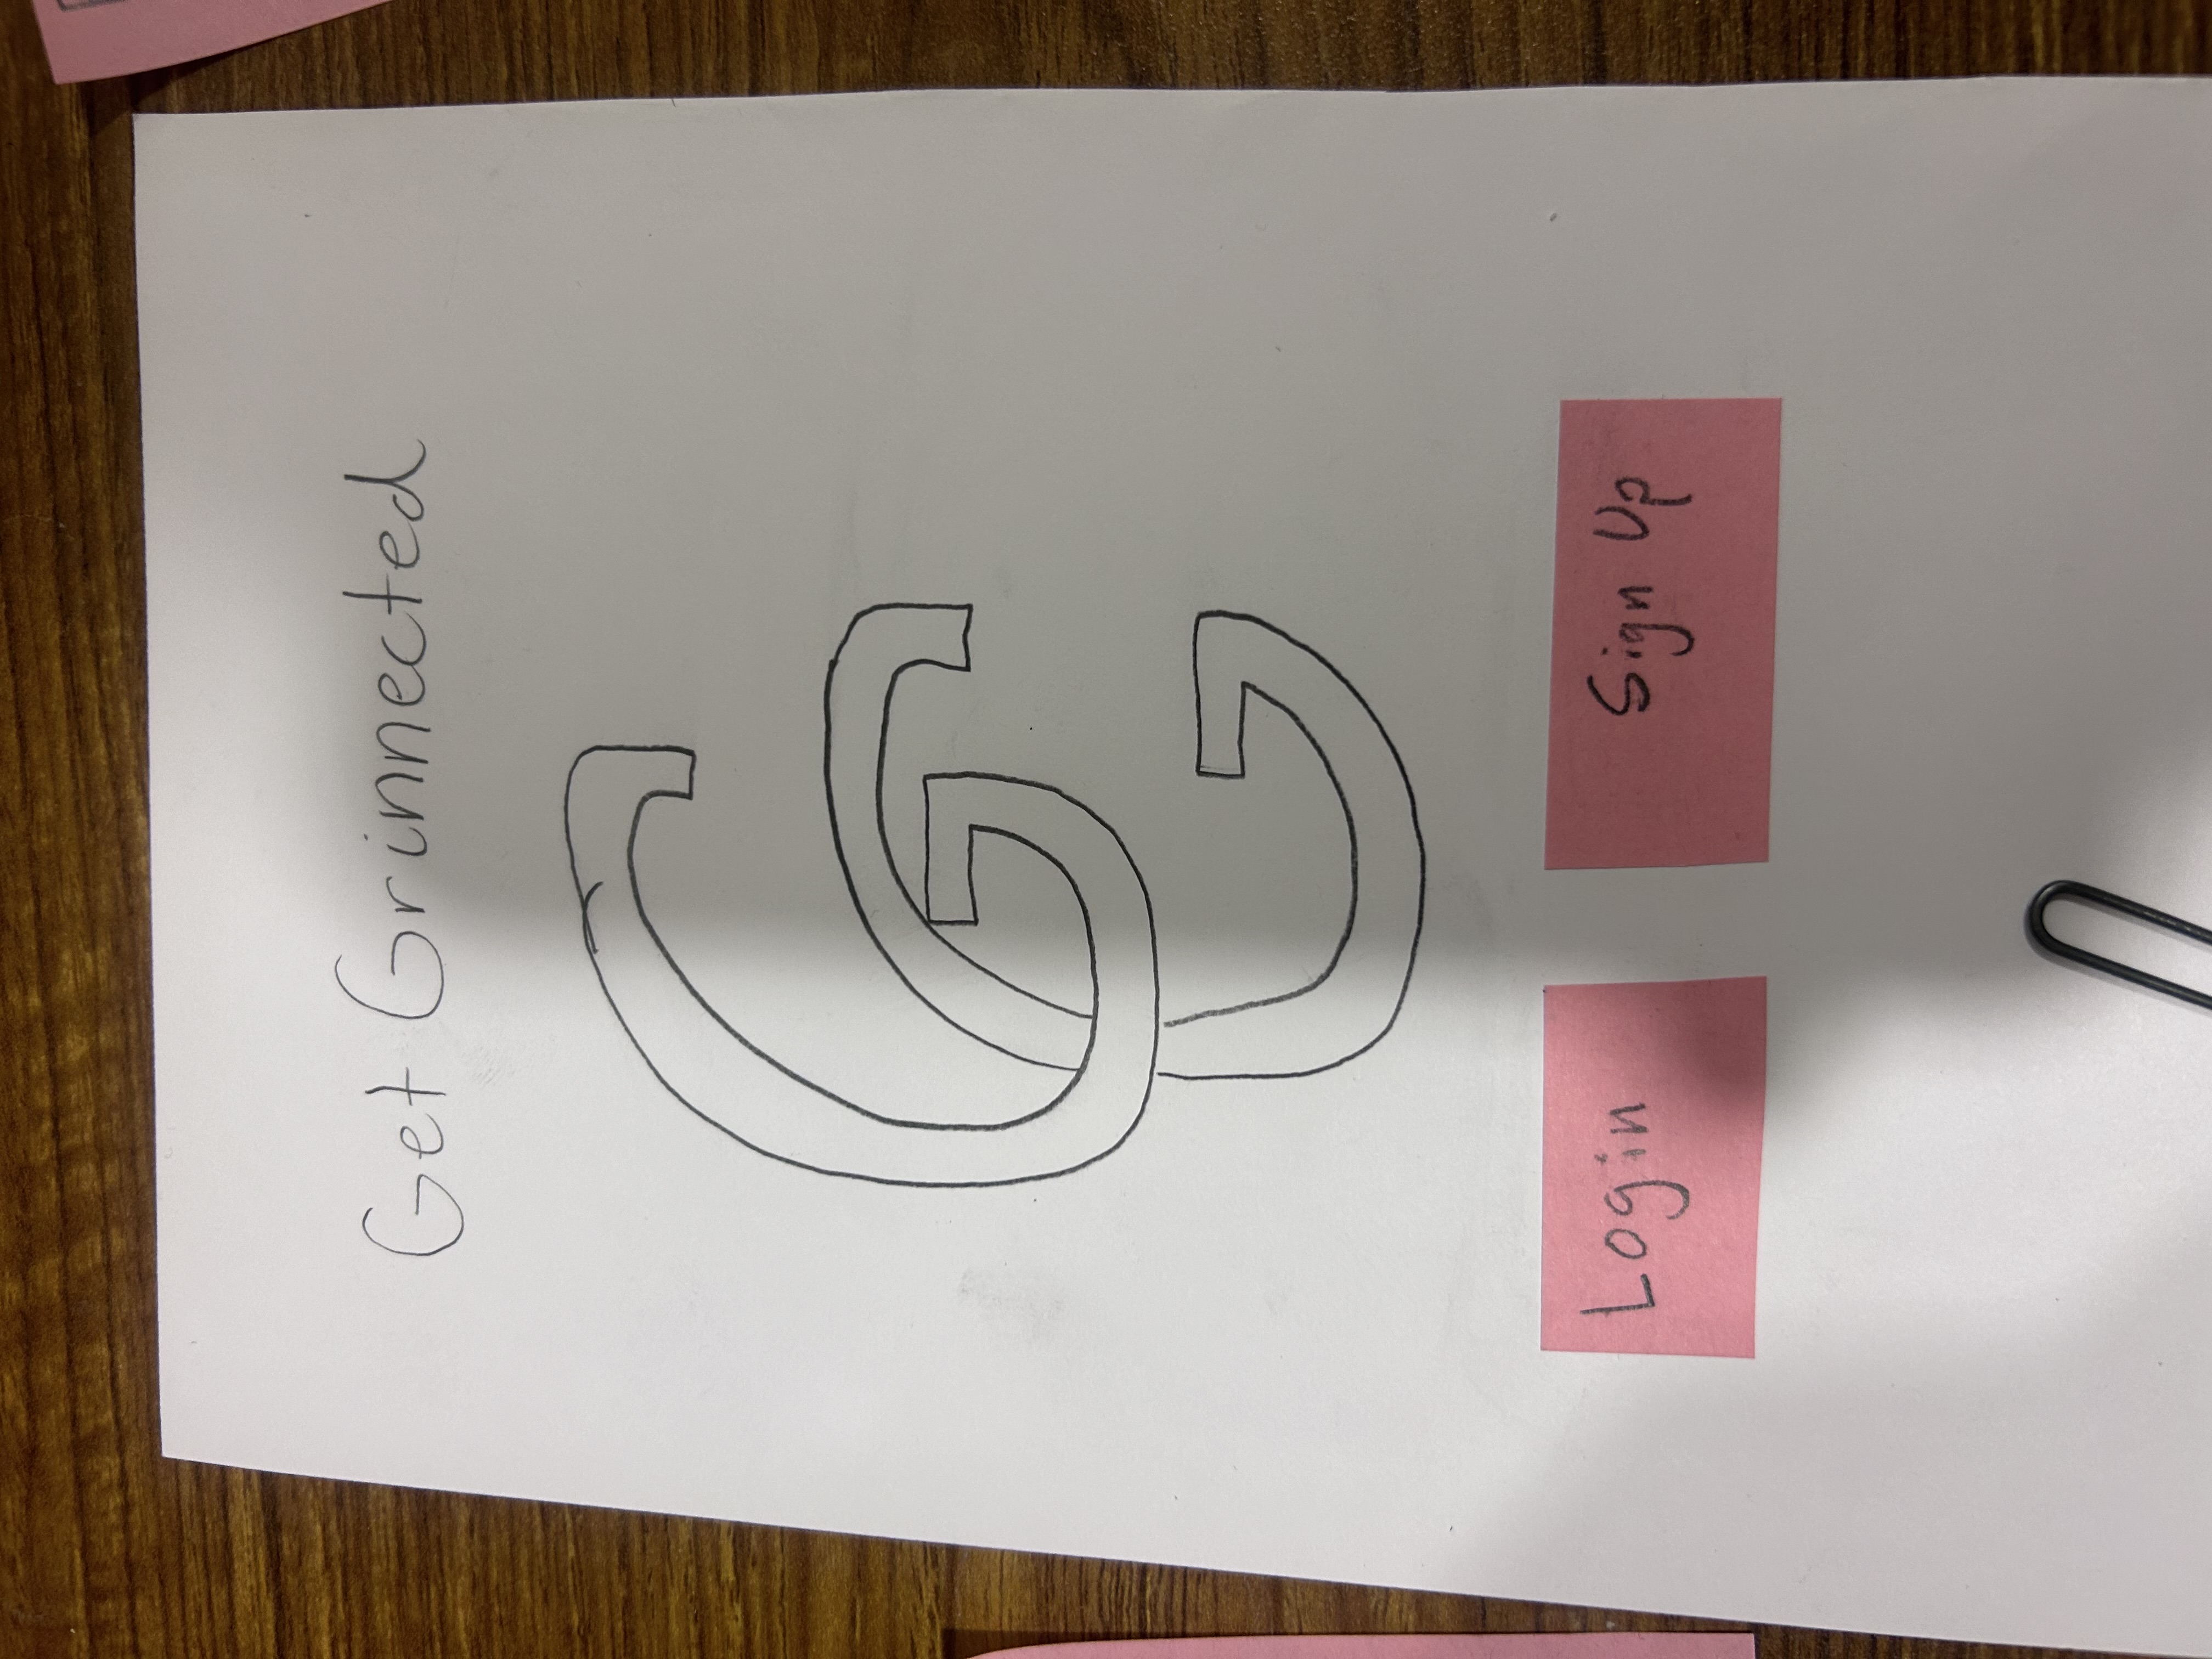 Get Grinnected
GG
Login Sign Up